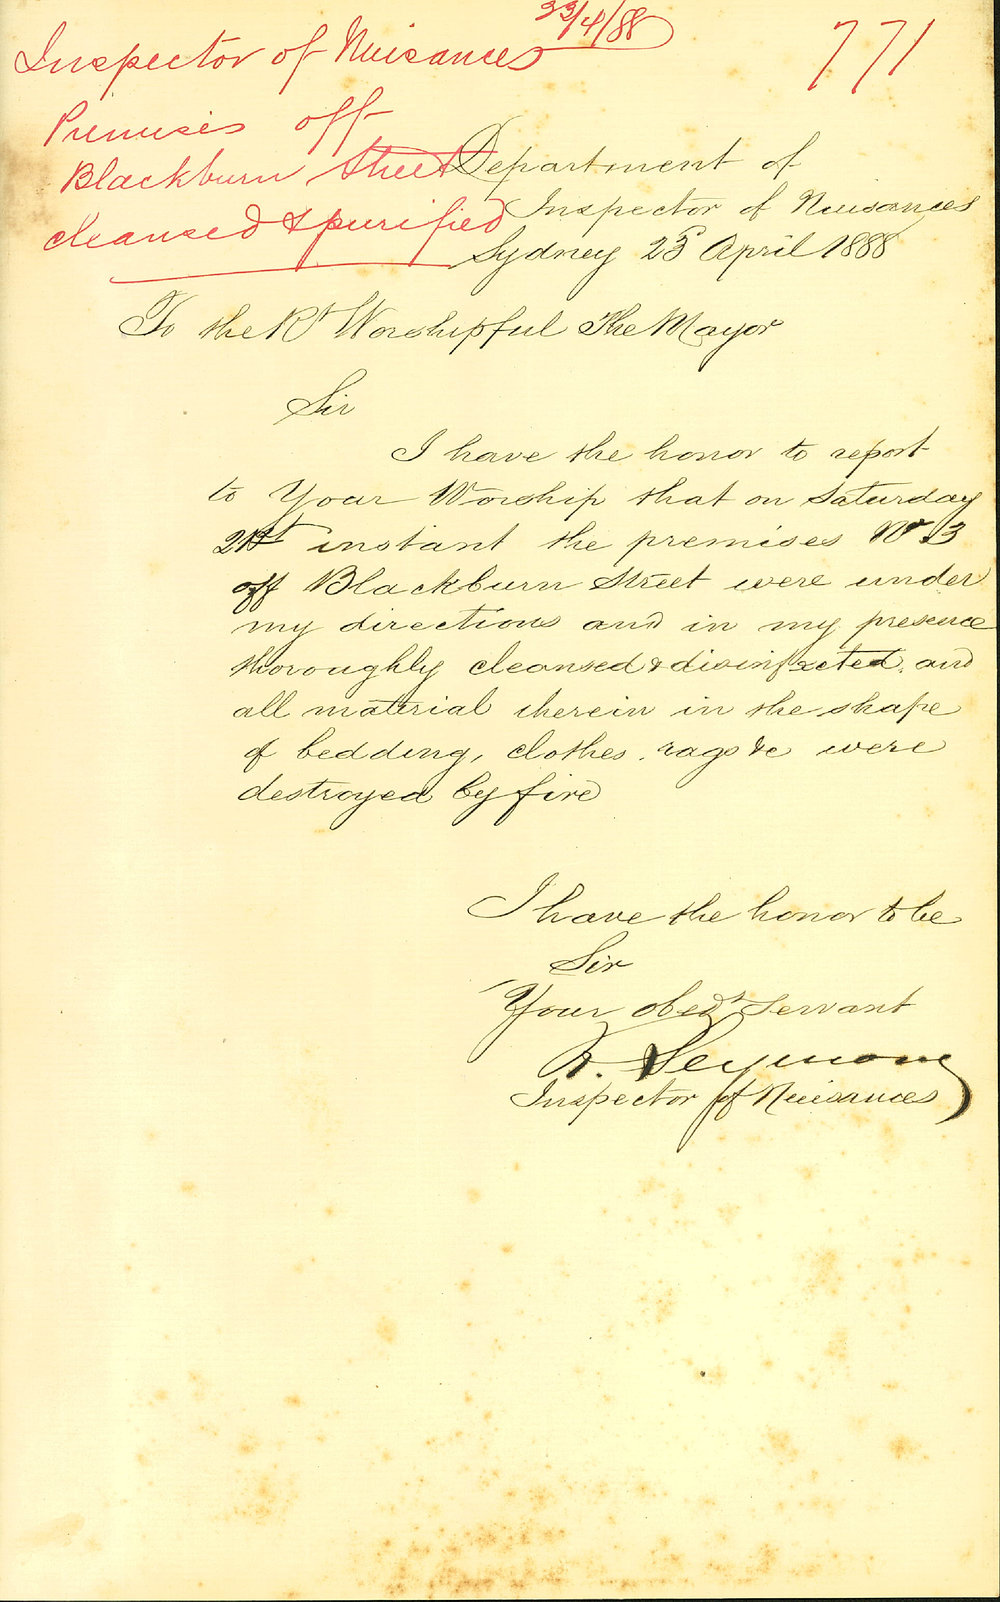 23/4/88
Inspector of Nuisances
771
Premises off
Blackburn Street
cleansed & purified
Department of
Inspector of Nuisances
Sydney 23 April 1888
To the Rt Worshipful The Mayor
Sir
I have the honor to report
to Your Worship that on Saturday
21st instant the premises No 3
off Blackburn Street were under
my directions and in my presence
thoroughly cleansed & disinfected, and
all material therein in the shape
of bedding, clothes, rags &c were
destroyed by fire
I have the honor to be
Sir
Your obedt Servant
R. Seymour
Inspector of Nuisances